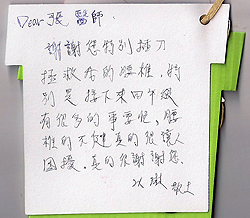 Dear 張醫師:
謝謝您特別插刀
拯救我的腰椎,特
別是接下來四年級
有很多的事要忙,腰
椎的不健真的很讓人
困擾。真的很謝謝您。
敬上